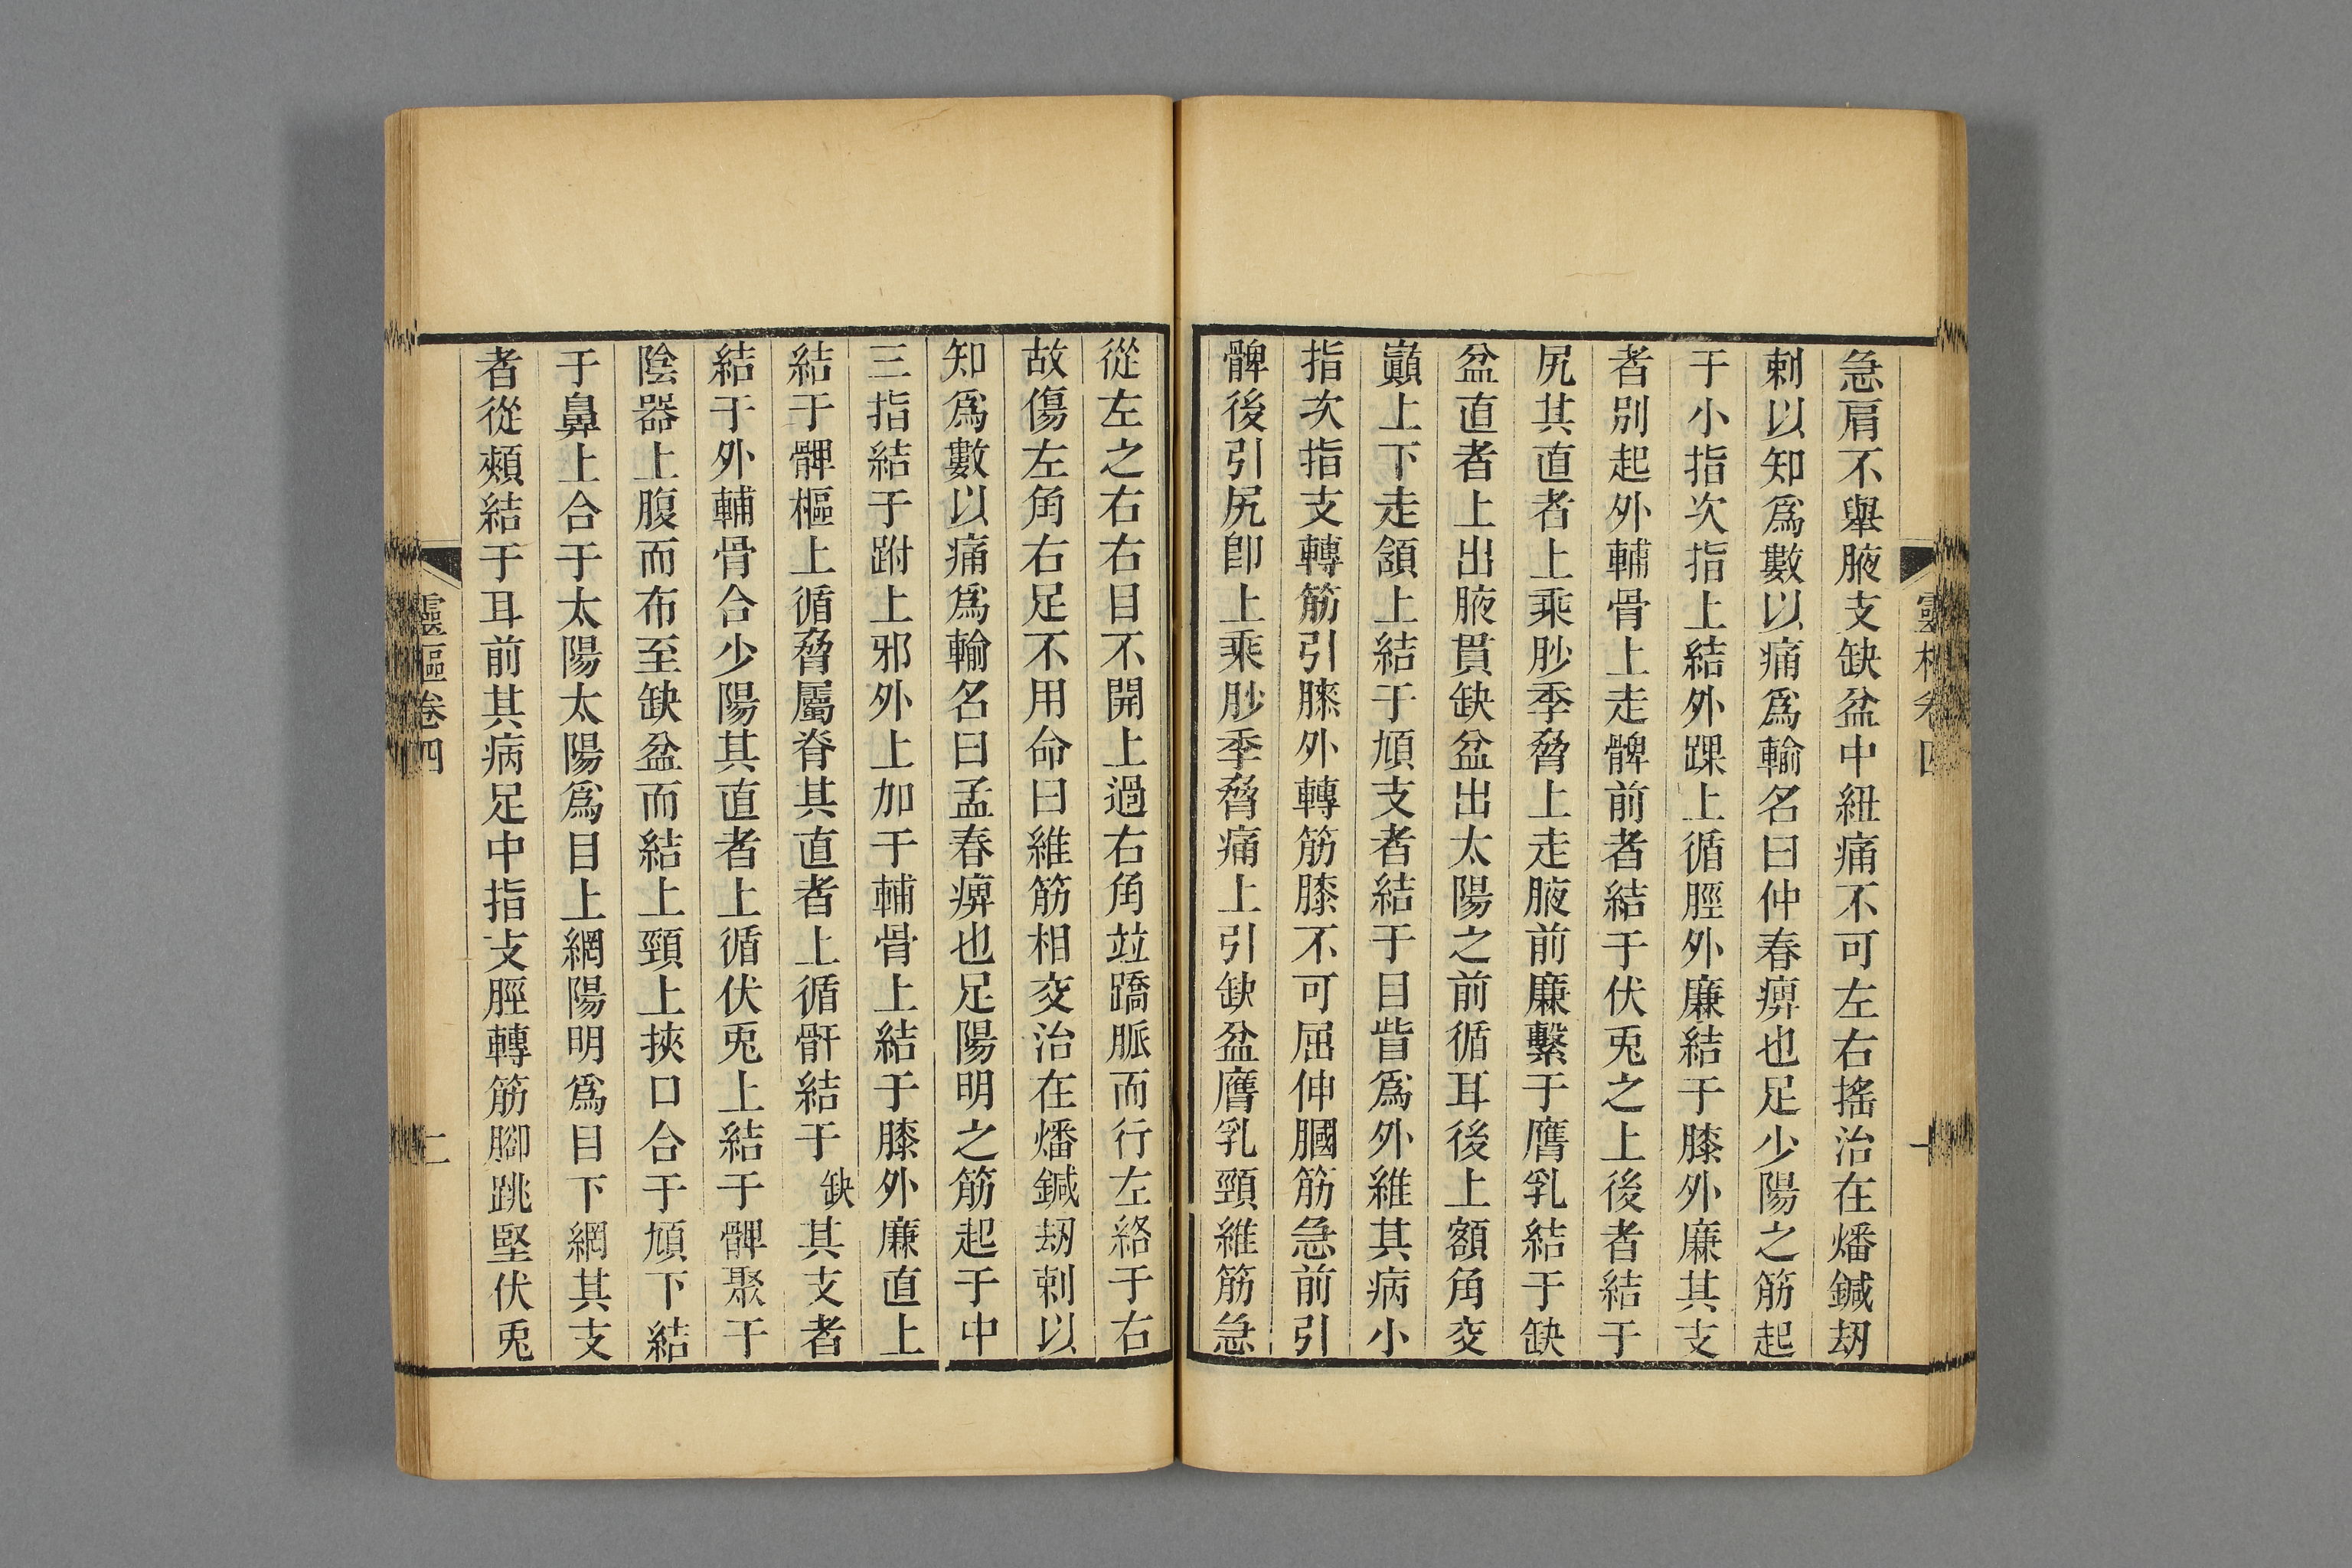 急肩不舉腋支缺盆中紐痛不可左右搖治在燔鍼刼
刺以知爲數以痛爲輸名曰仲春痹也足少陽之筋起
于小指次指上結外踝上循脛外廉結于膝外廉其支
者別起外輔骨上走髀前者結于伏兎之上後者結于
尻其直者上乘䏚季脅上走腋前廉繫于膺乳結于缺
盆直者上出腋貫缺盆出太陽之前循耳後上額角交
巓上下走頷上結于頄支者結于目眥爲外維其病小
指次指支轉筋引膝外轉筋膝不可屈伸膕筋急前引
髀後引尻卽上乘䏚季脅痛上引缺盆膺乳頸維筋急
從左之右右目不開上過右角竝蹻脈而行左絡于右
故傷左角右足不用命曰維筋相交治在燔鍼刼刺以
知爲數以痛爲輸名曰孟春痹也足陽明之筋起于中
三指結于跗上邪外上加于輔骨上結于膝外廉直上
結于髀樞上循脅屬脊其直者上循骭結于缺其支者
結于外輔骨合少陽其直者上循伏兎上結于髀聚于
陰器上腹而布至缺盆而結上頸上挾口合于頄下結
于鼻上合于太陽太陽爲目上網陽明爲目下網其支
者從頰結于耳前其病足中指支脛轉筋腳跳堅伏兎
靈樞卷四